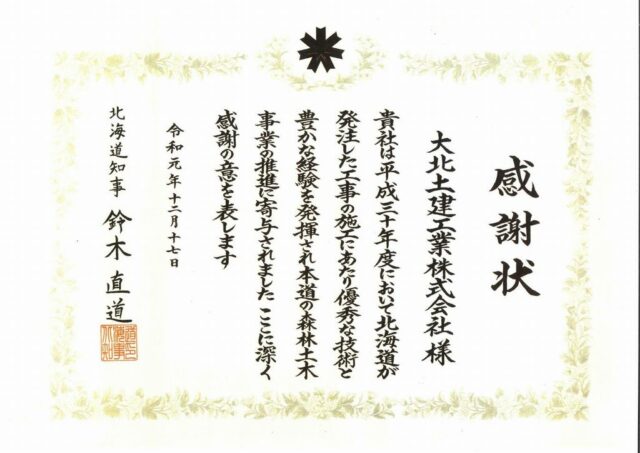 感謝状
大北土建工業株式会社 様
貴社は平成三十年度において北海道が
発注した工事の施工にあたり優秀な技術と
豊かな経験を発揮され本道の森林土木
事業の推進に寄与されました ここに深く
感謝の意を表します
令和元年十二月十七日
北海道知事 鈴木直道